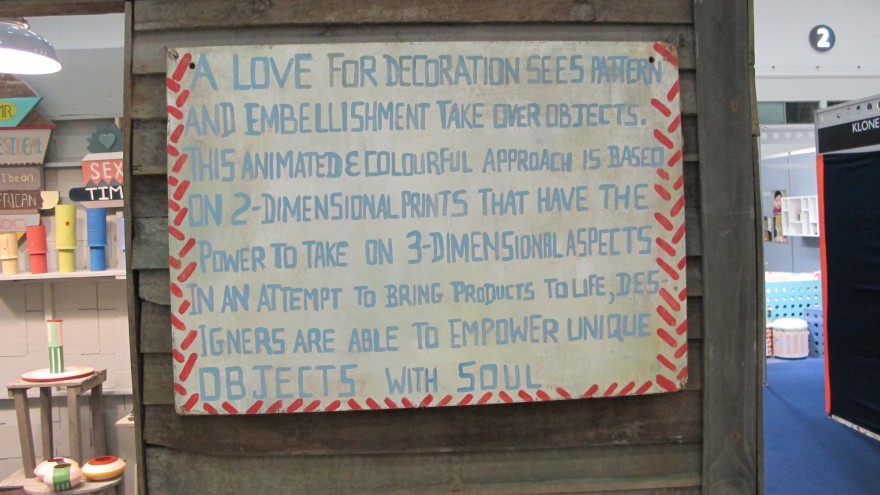 A LOVE FOR DECORATION SEES PATTERN
AND EMBELLISHMENT TAKE OVER OBJECTS.
THIS ANIMATED & COLOURFUL APPROACH IS BASED
ON 2-DIMENSIONAL PRINTS THAT HAVE THE
POWER TO TAKE ON 3-DIMENSIONAL ASPECTS
IN AN ATTEMPT TO BRING PRODUCTS TO LIFE, DES-
IGNERS ARE ABLE TO EMPOWER UNIQUE
OBJECTS WITH SOUL
2
KLONE
I be an
SEX
TIM